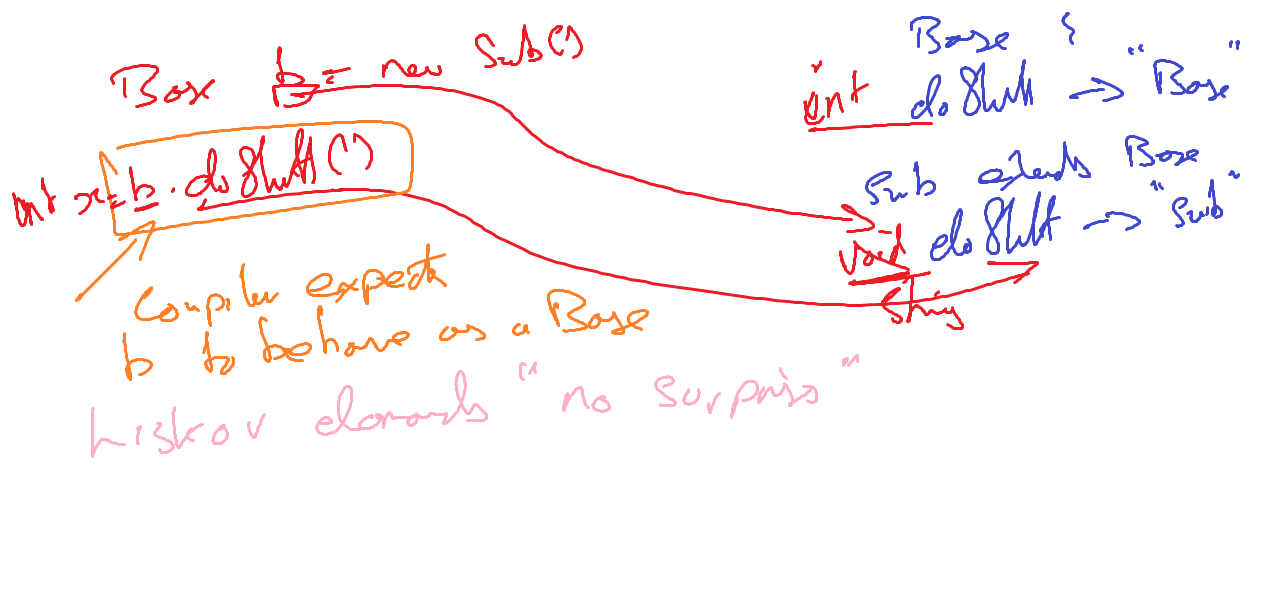 Base b = new Sub()
int x = b.doStuff()
Compiler expects
b to behave as a Base
Liskov demands "no surprises"
Base {
int doStuff → "Base"
Sub extends Base
void doStuff → "Sub"
String